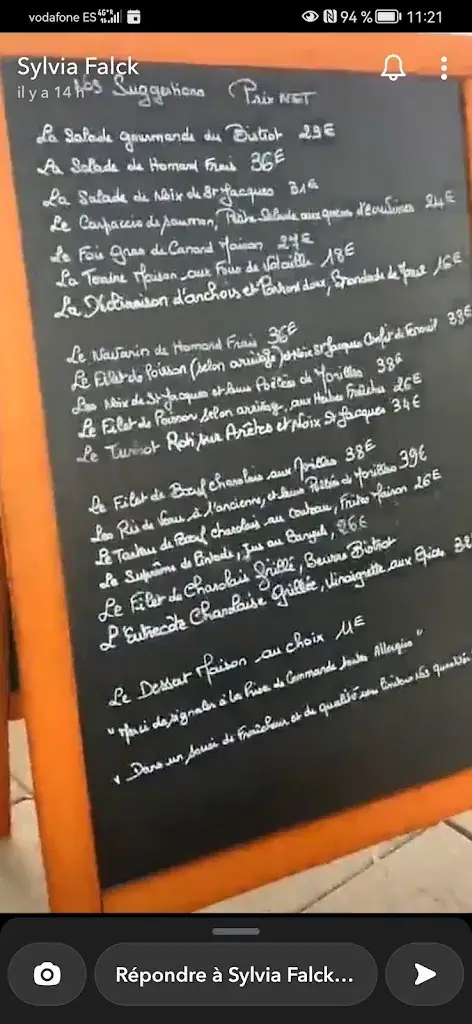 vodafone ES 4G+ 94 % 11:21
Sylvia Falck
il y a 14 h
Nos Suggestions Prix NET
La Salade gourmande du Bistrot 29€
La Salade de Homard Frais 36€
La Salade de Noix de St Jacques 31€
Le Carpaccio de saumon, Petite Salade aux queues d'écrevisses 24€
Le Foie Gras de Canard Maison 27€
La Terrine Maison aux Foies de Volaille 18€
La d'anchois et Poivrons doux, Brandade de Morue 16€
Le Navarin de Homard Frais 36€
Le Filet de Poisson (selon arrivage) et Noix St Jacques Confit de Fenouil 33€
Les Noix de St Jacques et leurs Poêlées de Morilles 38€
Le Filet de Poisson selon arrivage, aux Herbes Fraîches 26€
Le Turbot Roti sur Arêtes et Noix St Jacques 34€
Le Filet de Bœuf charolais aux Morilles 38€
Les Ris de Veau à l'ancienne, et leurs Poêlées de Morilles 39€
Le Tartare de Bœuf charolais au Couteau, Frites Maison 26€
Le Suprême de Pintade, Jus au Banyuls, 26€
Le Filet de Charolais Grillé, Beurre Bistrot
L'Entrecôte Charolaise Grillée, Vinaigrette aux Epices 32
Le Dessert Maison au choix 11€
"Merci de signaler à la Prise de Commande toutes Allergies"
Dans un souci de Fraîcheur et de qualité nos
Répondre à Sylvia Falck...